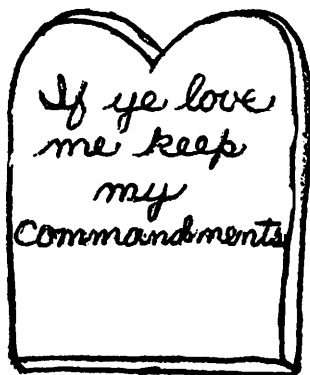 If ye love
me keep
my
Commandments